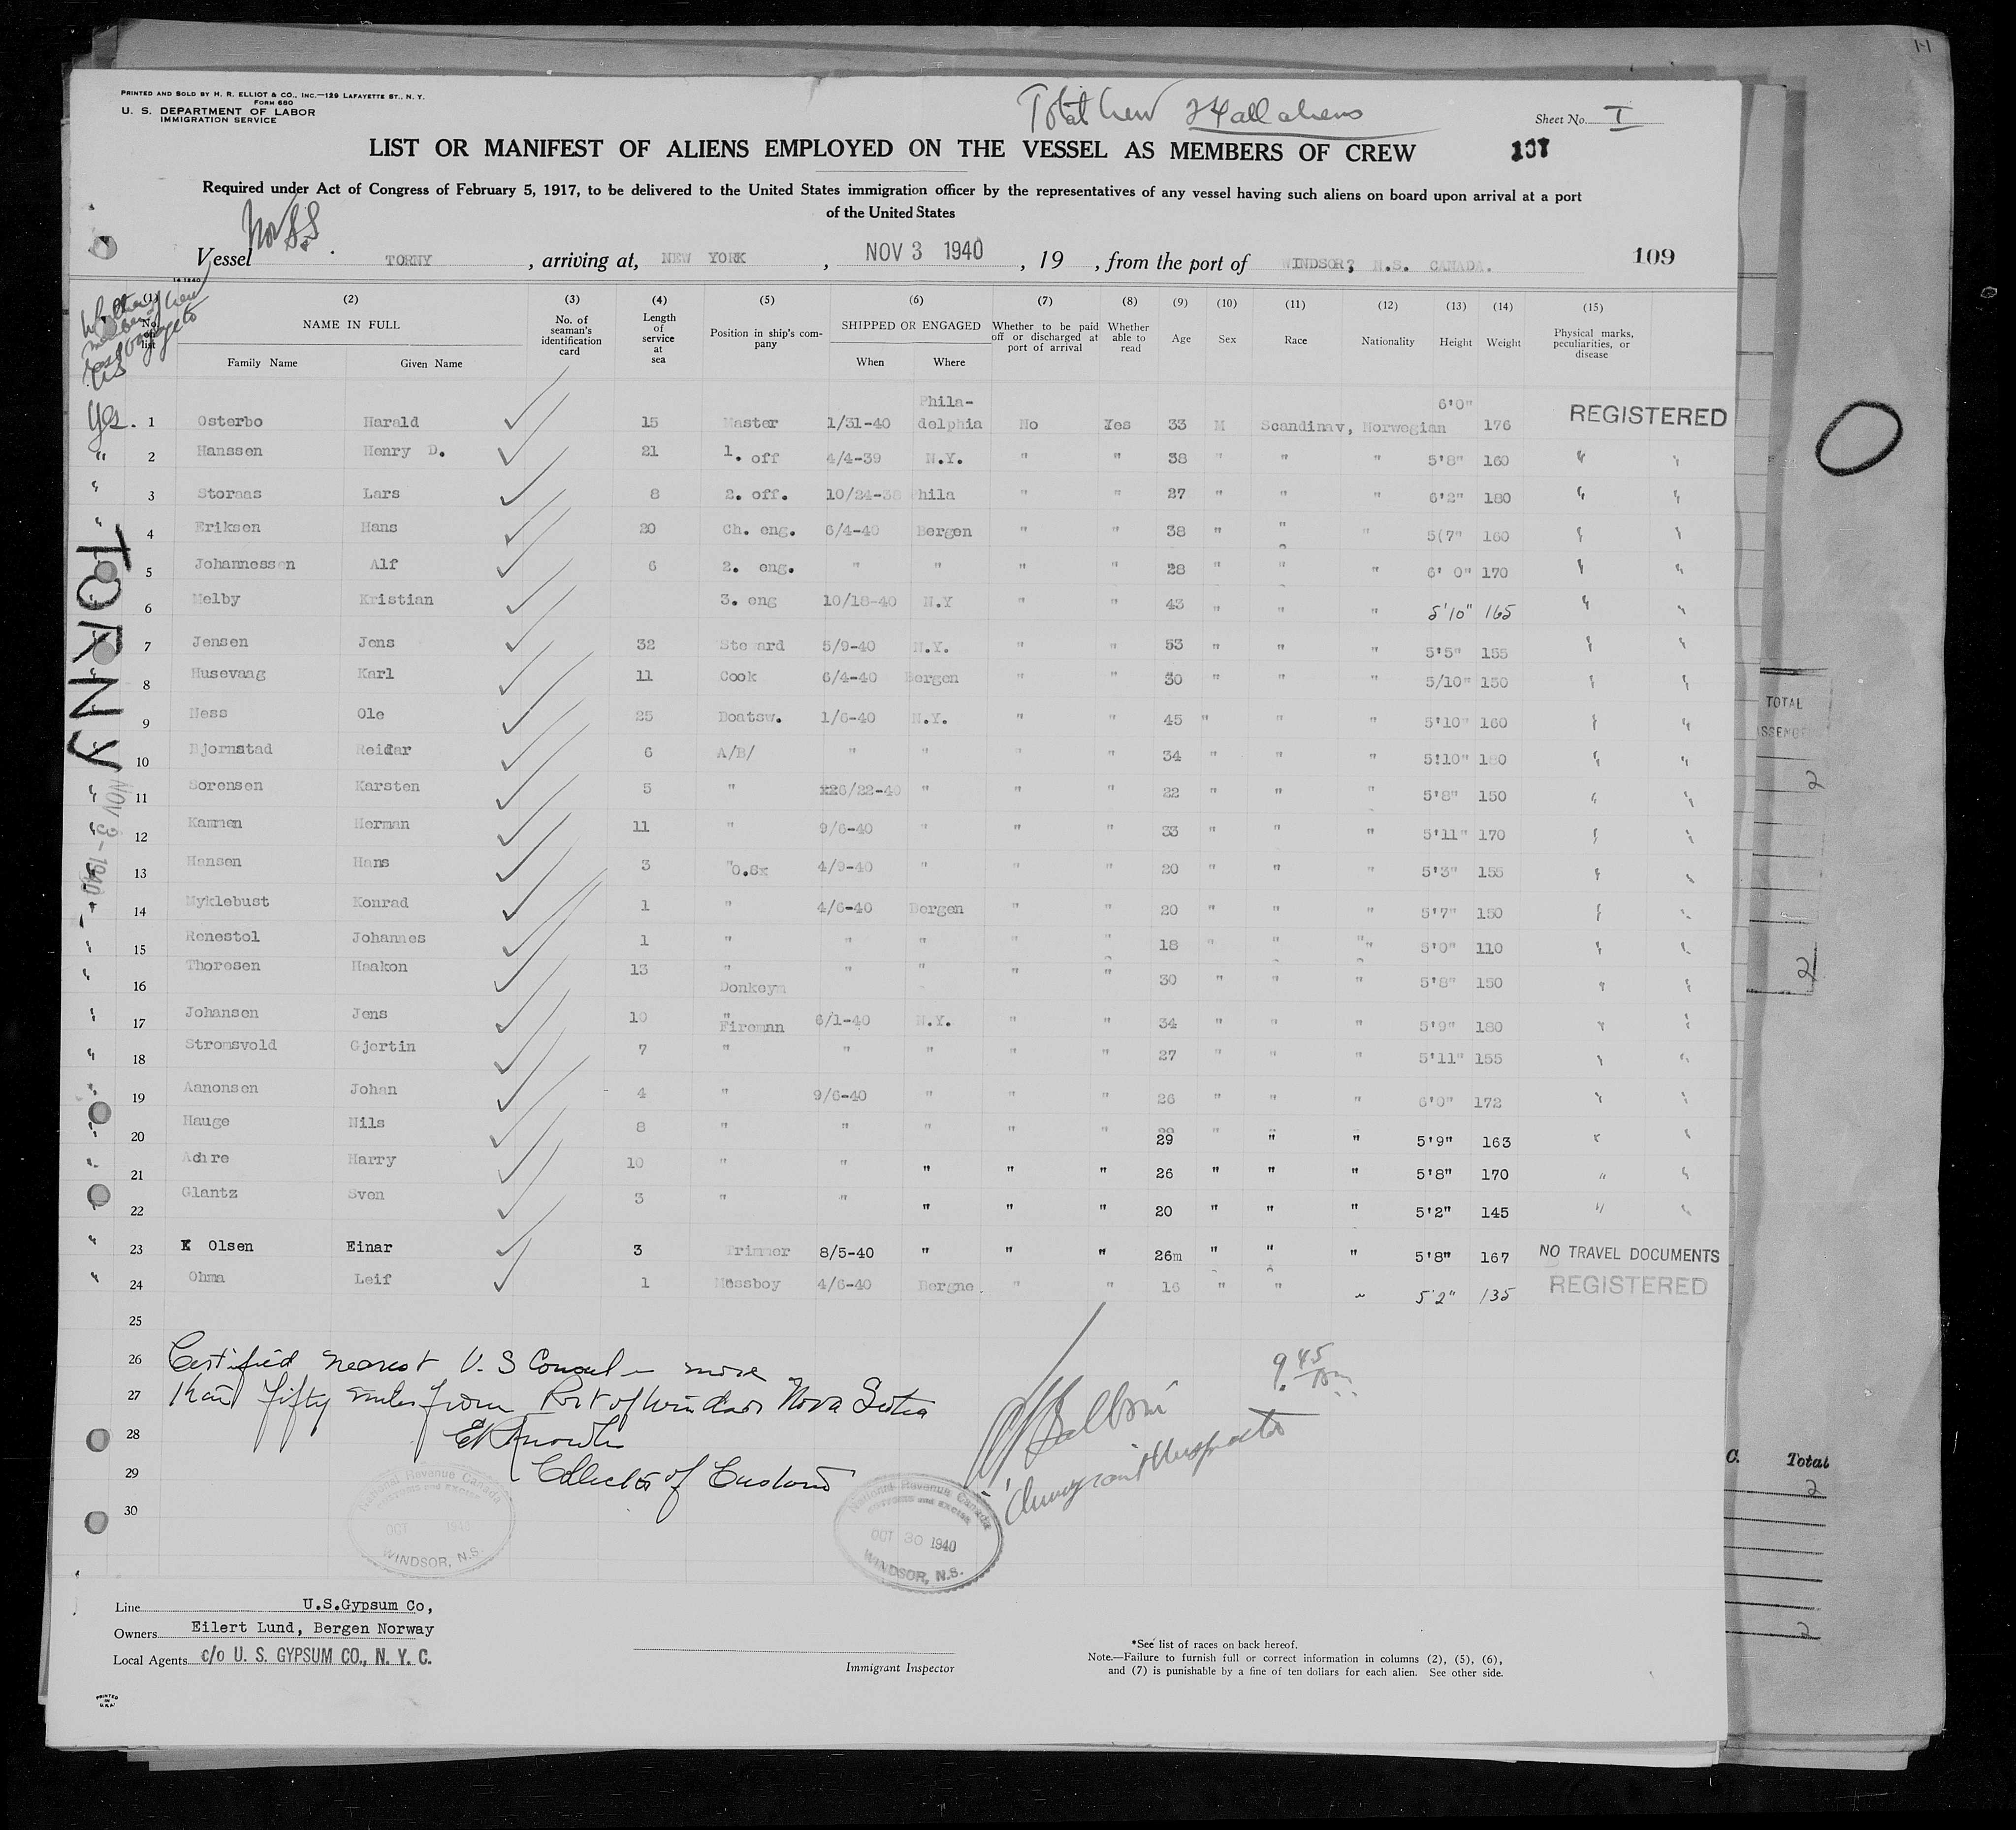 PRINTED AND SOLD BY H. R. ELLIOT & CO., INC.—129 LAFAYETTE ST., N. Y.
FORM 680
U. S. DEPARTMENT OF LABOR
IMMIGRATION SERVICE
Total Crew 24 all aliens
Sheet No. I
LIST OR MANIFEST OF ALIENS EMPLOYED ON THE VESSEL AS MEMBERS OF CREW
107
Required under Act of Congress of February 5, 1917, to be delivered to the United States immigration officer by the representatives of any vessel having such aliens on board upon arrival at a port
of the United States
Nor SS
Vessel TORNY , arriving at, NEW YORK , NOV 3 1940 , 19 , from the port of WINDSOR, N.S. CANADA. 109
(1) (2) (3) (4) (5) (6) (7) (8) (9) (10) (11) (12) (13) (14) (15)
No. on list NAME IN FULL Family Name Given Name No. of seaman's identification card Length of service at sea Position in ship's company SHIPPED OR ENGAGED When Where Whether to be paid off or discharged at port of arrival Whether able to read Age Sex Race Nationality Height Weight Physical marks, peculiarities, or disease
Yes. 1 Osterbo Harald 15 Master 1/31-40 Phila-delphia No Yes 33 M Scandinav, Norwegian 6'0" 176 REGISTERED
" 2 Hanssen Henry D. 21 1. off 4/4-39 N.Y. " " 38 " " " 5'8" 160 " "
" 3 Storaas Lars 8 2. off. 10/24-38 Phila " " 27 " " " 6'2" 180 " "
" 4 Eriksen Hans 20 Ch. eng. 6/4-40 Bergen " " 38 " " " 5(7" 160 " "
5 Johannessen Alf 6 2. eng. " " " " 28 " " " 6' 0" 170 " "
6 Melby Kristian 3. eng 10/18-40 N.Y " " 43 " " " 5'10" 165 " "
7 Jensen Jens 32 Steward 5/9-40 N.Y. " " 53 " " " 5'5" 155 " "
8 Husevaag Karl 11 Cook 6/4-40 Bergen " " 30 " " " 5/10" 150 " "
9 Hess Ole 25 Boatsw. 1/6-40 N.Y. " " 45 " " " 5'10" 160 " "
10 Bjornstad Reidar 6 A/B/ " " " " 34 " " " 5!10" 180 " "
" 11 Sorensen Karsten 5 " 6/22-40 " " " 22 " " " 5'8" 150 " "
" 12 Kammen Herman 11 " 9/6-40 " " " 33 " " " 5'11" 170 " "
13 Hansen Hans 3 "O.Sx 4/9-40 " " " 20 " " " 5'3" 155 " "
14 Myklebust Konrad 1 " 4/6-40 Bergen " " 20 " " " 5'7" 150 " "
" 15 Renestol Johannes 1 " " " " " 18 " " " 5'0" 110 " "
" 16 Thoresen Haakon 13 " Donkeym " " " " 30 " " " 5'8" 150 " "
" 17 Johansen Jens 10 " Fireman 6/1-40 N.Y. " " 34 " " " 5'9" 180 " "
" 18 Stromsvold Gjertin 7 " " " " " 27 " " " 5'11" 155 " "
" 19 Aanonsen Johan 4 " 9/6-40 " " " 26 " " " 6'0" 172 " "
" 20 Hauge Nils 8 " " " " " 29 " " " 5'9" 163 " "
" 21 Harry 10 " " " " " 26 " " " 5'8" 170 " "
22 Glantz Sven 3 " " " " " 20 " " " 5'2" 145 " "
" 23 Olsen Einar 3 Trimmer 8/5-40 " " " 26m " " " 5'8" 167 NO TRAVEL DOCUMENTS
" 24 Ohma Leif 1 Messboy 4/6-40 Bergne. " " 16 " " " 5'2" 135 REGISTERED
25
26 Certified nearest U. S Consul is more
27 than fifty miles from Port of Windsor Nova Scotia
28
29 Collector of Customs
30
9.45 am
Immigrant Inspector
TORNY
NOV 3-1940
National Revenue Canada
CUSTOMS and EXCISE
OCT 1940
WINDSOR, N.S.
National Revenue Canada
CUSTOMS and EXCISE
OCT 30 1940
WINDSOR, N.S.
Line U.S.Gypsum Co,
Owners Eilert Lund, Bergen Norway
Local Agents c/o U. S. GYPSUM CO., N. Y. C.
Immigrant Inspector
*See list of races on back hereof.
Note.—Failure to furnish full or correct information in columns (2), (5), (6),
and (7) is punishable by a fine of ten dollars for each alien. See other side.
PRINTED IN U.S.A.
TOTAL
2
2
C. Total
2
2